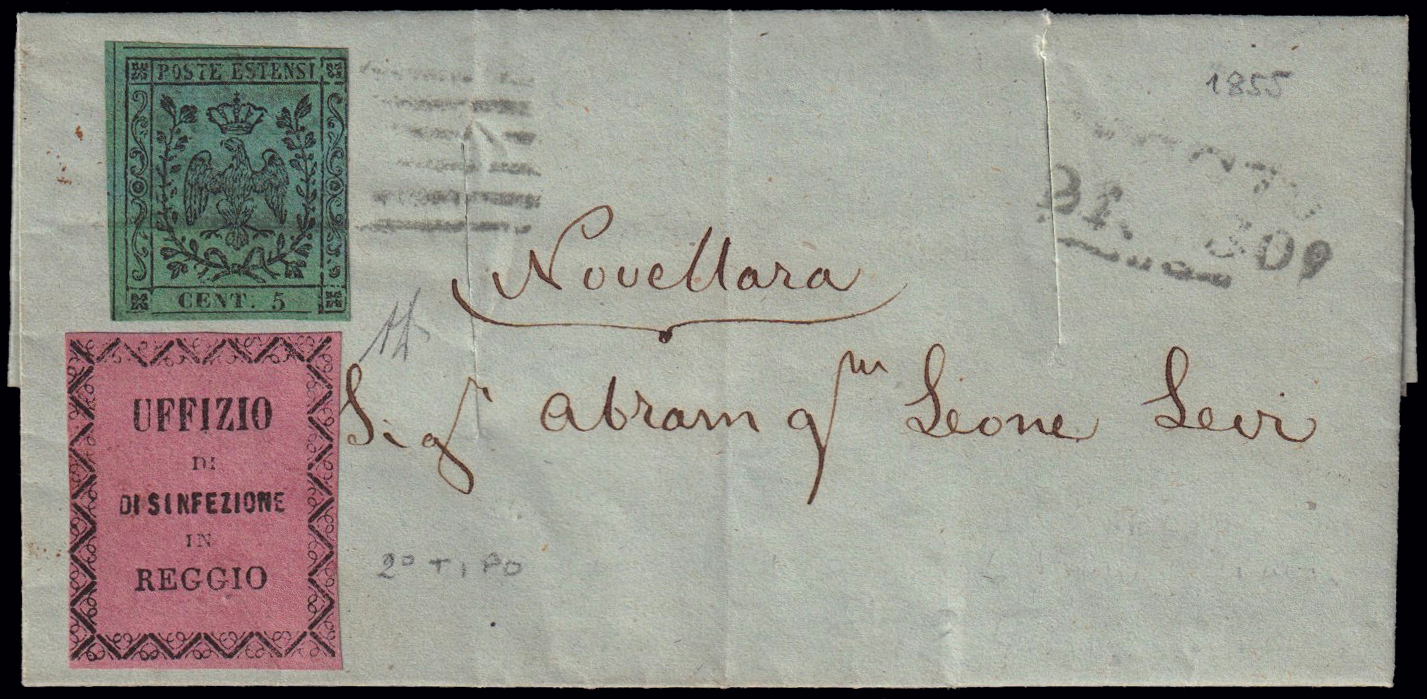 POSTE ESTENSI
CENT. 5
1855
Novellara
Sigr Abram qm Leone Levi
UFFIZIO
DI
DISINFEZIONE
IN
REGGIO
2º TIPO